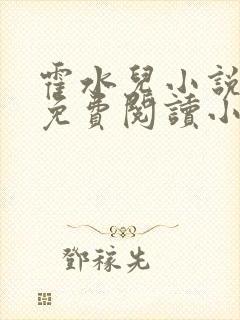 霍水兒小說
免費閱讀小
鄧稼先